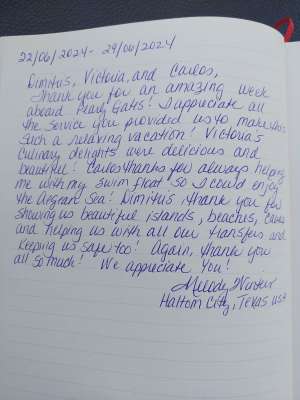 22/06/2024 - 29/06/2024
Dimitris, Victoria, and Carlos,
Thank you for an amazing week
aboard Pearly Gates! I appreciate all
the service you provided us to make this
such a relaxing vacation! Victoria's
culinary delights were delicious and
beautiful! Carlos thanks for always helping
me with my swim float so I could enjoy
the Aegean Sea! Dimitris, thank you for
showing us beautiful islands, beaches, caves
and helping us with all our transfers and
keeping us safe too! Again, thank you
all so much! We appreciate you!
Melody
Haltom City, Texas USA